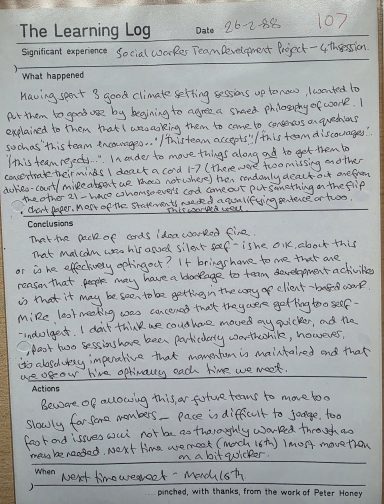 The Learning Log
Date 26-2-88
107
Significant experience Social Worker Team Development Project - 4th session.
What happened
Having spent 3 good climate setting sessions up to now, I wanted to
put them to good use by begining to agree a shared philosophy of work. I
explained to them that I was asking them to come to consensus on questions
such as 'this team encourages...'/'this team accepts'/'this team discourages'
/'this team rejects...'. In order to move things along and to get them to
concentrate their minds I dealt a card 1-7 (there were two missing on other
duties - court/mike absent we know not where) then randomly dealt out one from
the other 21 - have whomsoever's card came out put something on the flip
chart paper. Most of the statements needed a qualifying sentence or two.
This worked well
Conclusions
That the pack of cards idea worked fine.
That Malcolm was his usual silent self - is he O.K. about this
or is he effectively opting out? It brings home to me that one
reason that people may have a blockage to team development activities
is that it may be seen to be getting in the way of client-based work.
Mike last meeting was concerned that they were getting too self-
indulgent. I don't think we could have moved any quicker, and the
past two sessions have been particularly worthwhile, however,
its absolutely imperative that momentum is maintained and that
we use our time optimally each time we meet.
Actions
Beware of allowing this, or future teams to move too
slowly for some members - pace is difficult to judge, too
fast and issues will not be as thoroughly worked through as
may be needed. Next time we meet (March 16th) I must move them
on a bit quicker.
When Next time we meet - March 16th
...pinched, with thanks, from the work of Peter Honey